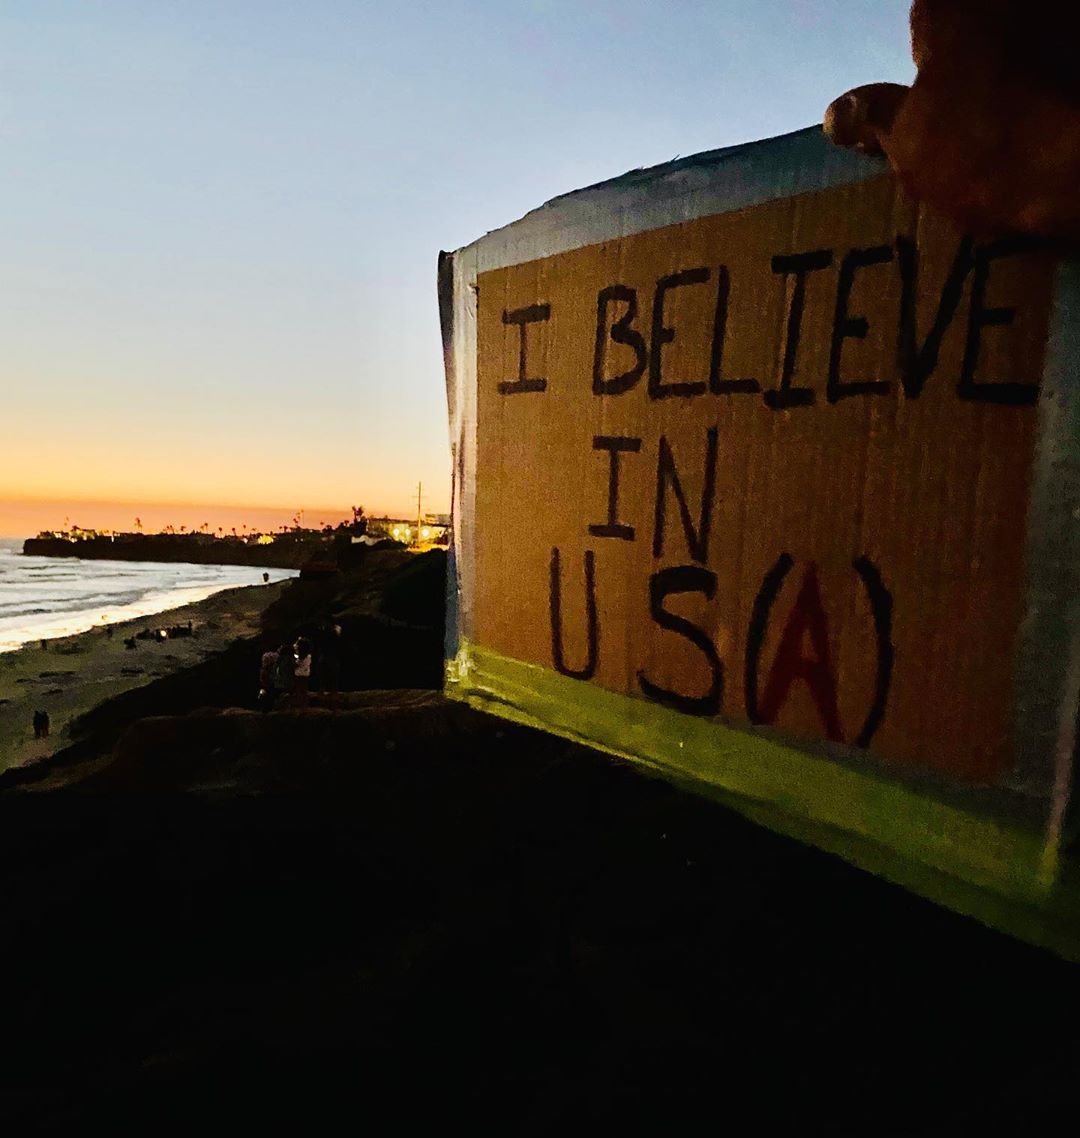 I BELIEVE
IN
US(A)